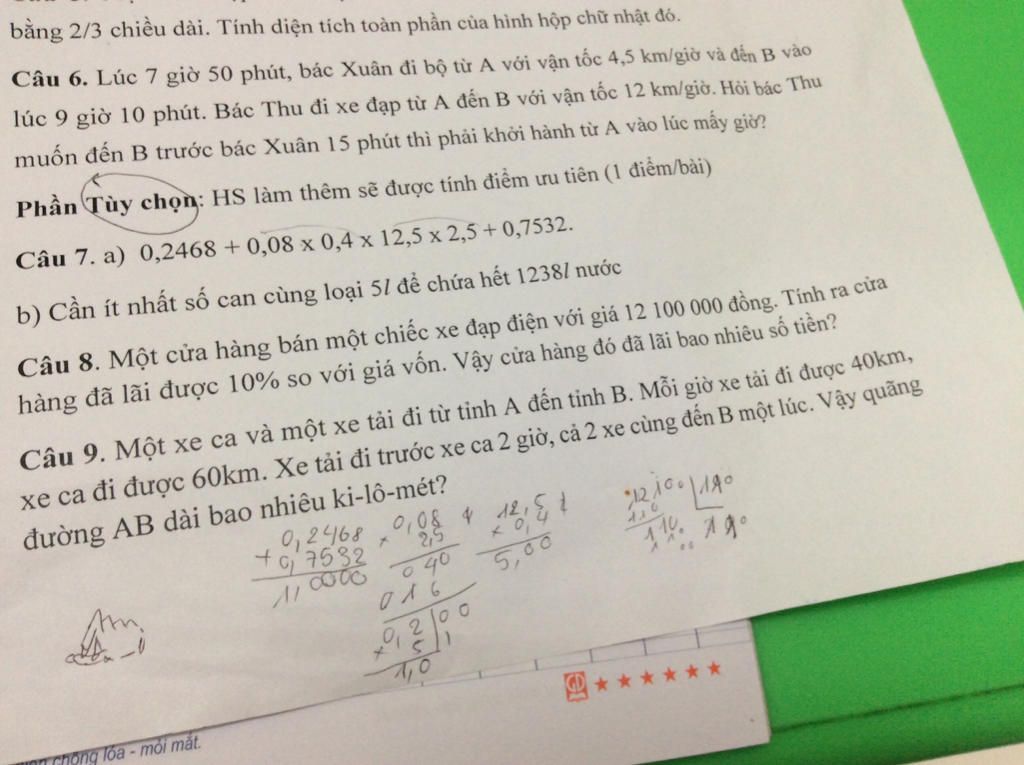 bằng 2/3 chiều dài. Tính diện tích toàn phần của hình hộp chữ nhật đó.
Câu 6. Lúc 7 giờ 50 phút, bác Xuân đi bộ từ A với vận tốc 4,5 km/giờ và đến B vào
lúc 9 giờ 10 phút. Bác Thu đi xe đạp từ A đến B với vận tốc 12 km/giờ. Hỏi bác Thu
muốn đến B trước bác Xuân 15 phút thì phải khởi hành từ A vào lúc mấy giờ?
Phần Tùy chọn: HS làm thêm sẽ được tính điểm ưu tiên (1 điểm/bài)
Câu 7. a) 0,2468 + 0,08 x 0,4 x 12,5 x 2,5 + 0,7532.
b) Cần ít nhất số can cùng loại 5l để chứa hết 1238l nước
Câu 8. Một cửa hàng bán một chiếc xe đạp điện với giá 12 100 000 đồng. Tính ra cửa
hàng đã lãi được 10% so với giá vốn. Vậy cửa hàng đó đã lãi bao nhiêu số tiền?
Câu 9. Một xe ca và một xe tải đi từ tỉnh A đến tỉnh B. Mỗi giờ xe tải đi được 40km,
xe ca đi được 60km. Xe tải đi trước xe ca 2 giờ, cả 2 xe cùng đến B một lúc. Vậy quãng
đường AB dài bao nhiêu ki-lô-mét?
0,2468 0,08 12,5
+ 0,7532 x 2,5 x 0,4
1,0000 040 5,00
016
0,200
x 5
1,0
GD
chống lóa - mỏi mắt.